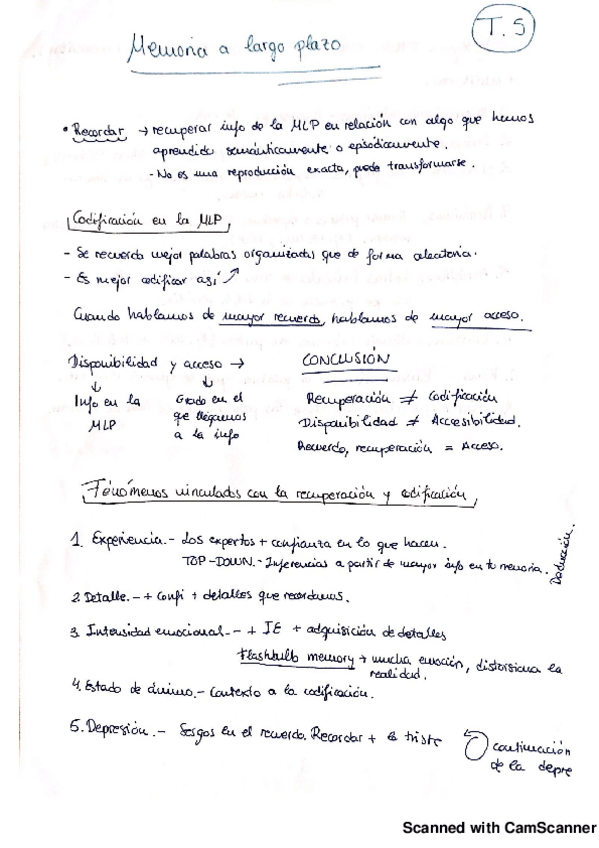 T.5
Memoria a largo plazo
• Recordar → recuperar info de la MLP en relación con algo que hemos
aprendido semánticamente o episódicamente.
- No es una reproducción exacta, puede transformarse.
Codificación en la MLP
- Se recuerda mejor palabras organizadas que de forma aleatoria.
- Es mejor codificar así ↗
Cuando hablamos de mayor recuerdo, hablamos de mayor acceso.
Disponibilidad y acceso →
↓ ↓
Info en la MLP
Grado en el que llegamos a la info
CONCLUSIÓN
Recuperación ≠ Codificación
Disponibilidad ≠ Accesibilidad.
Recuerdo, recuperación = Acceso.
Fenómenos vinculados con la recuperación y codificación
1. Experiencia.- Los expertos + confianza en lo que hacen.
TOP-DOWN.- Inferencias a partir de mayor info en tu memoria.
Deducción.
2. Detalle.- + Confi + detalles que recordamos.
3. Intensidad emocional.- + IE + adquisición de detalles
Flashbulb memory → mucha emoción, distorsiona la
realidad.
4. Estado de ánimo.- Contexto a la codificación.
5. Depresión.- Sesgos en el recuerdo. Recordar + lo triste
continuación
de la depre
Scanned with CamScanner